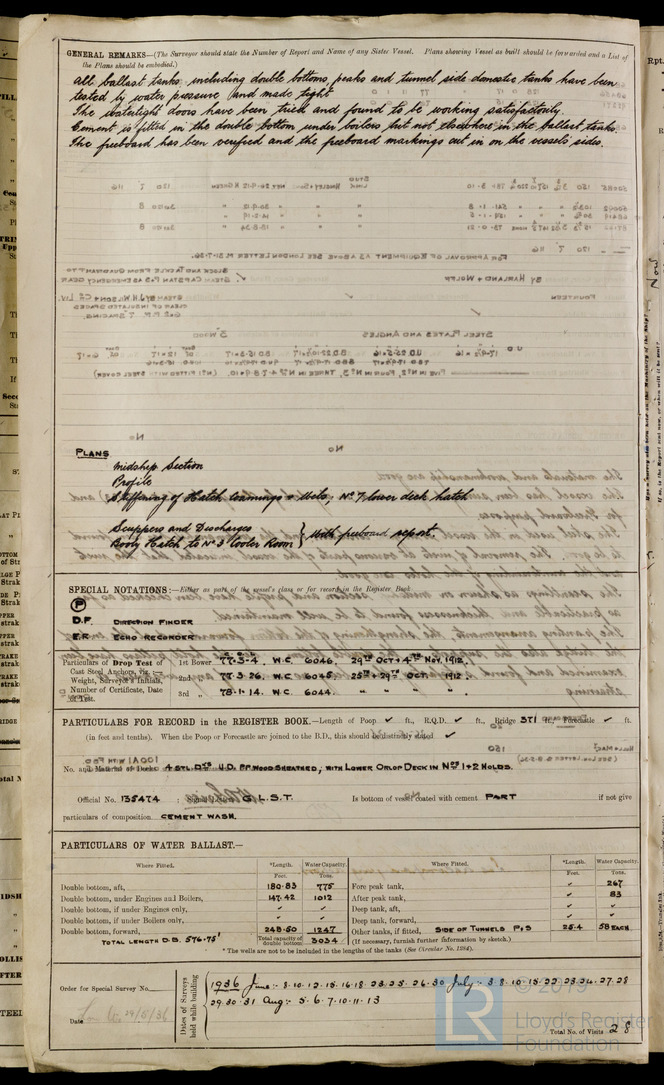 GENERAL REMARKS—(The Surveyor should state the Number of Report and Name of any Sister Vessel. Plans showing Vessel as built should be forwarded and a List of
the Plans should be embodied.)
All ballast tanks including double bottoms, peaks and tunnel side domestic tanks have been
tested by water pressure and made tight
The watertight doors have been tried and found to be working satisfactorily.
Cement is fitted in the double bottom under boilers but not elsewhere in the ballast tanks.
The freeboard has been verified and the freeboard markings cut in on the vessel's sides.
PLANS
Midship Section
Profile
Stiffening of Hatch Coamings & Webs, No 7 lower deck hatch
Scuppers and Discharges
Booby Hatch to No 3 Cooler Room } With freeboard report.
SPECIAL NOTATIONS:—Either as part of the vessel's class or for record in the Register Book
P
D.F. DIRECTION FINDER
E.R. ECHO RECORDER
Particulars of Drop Test of Cast Steel Anchors, viz.:—Weight, Surveyor's Initials, Number of Certificate, Date of Test.
1st Bower 77-3-4. W.C. 6046. 29TH OCT & 4TH NOV. 1912.
2nd " 77-3-26. W.C. 6045 25TH & 29TH OCT. 1912.
3rd " 78-1-14. W.C. 6044. " " " "
PARTICULARS FOR RECORD in the REGISTER BOOK.—Length of Poop ✓ ft., R.Q.D. ✓ ft., Bridge 571 ft., Forecastle ✓ ft.
(in feet and tenths). When the Poop or Forecastle are joined to the B.D., this should be distinctly stated ✓
No. and Material of Decks 4 STL. DKS U.D. PT WOOD SHEATHED, WITH LOWER ORLOP DECK IN NOS 1 & 2 HOLDS.
Official No. 135474 : G.L.S.T. Is bottom of vessel coated with cement PART if not give
particulars of composition CEMENT WASH.
PARTICULARS OF WATER BALLAST.—
Where Fitted. *Length. Water Capacity. Where Fitted. *Length. Water Capacity.
Feet. Tons. Feet. Tons.
Double bottom, aft, 180.83 775 Fore peak tank, ✓ 267
Double bottom, under Engines and Boilers, 147.42 1012 After peak tank, ✓ 83
Double bottom, if under Engines only, ✓ ✓ Deep tank, aft, ✓
Double bottom, if under Boilers only, ✓ ✓ Deep tank, forward, ✓
Double bottom, forward, 248.50 1247 Other tanks, if fitted, SIDE OF TUNNELS P & S 25.4 58 EACH
TOTAL LENGTH D.B. 576.75' Total capacity of double bottom 3034 (If necessary, furnish further information by sketch.)
* The wells are not to be included in the lengths of the tanks (See Circular No. 1284).
Order for Special Survey No.
Date
Dates of Surveys held while building
1936 June:- 8.10.12.15.16.18.23.25.26.30 July:- 3.8.10.15.22.23.24.27.28
29.30.31 Aug:- 5.6.7.10.11.13
Total No. of Visits 28
© 2019
LR
Lloyd's Register
Foundation